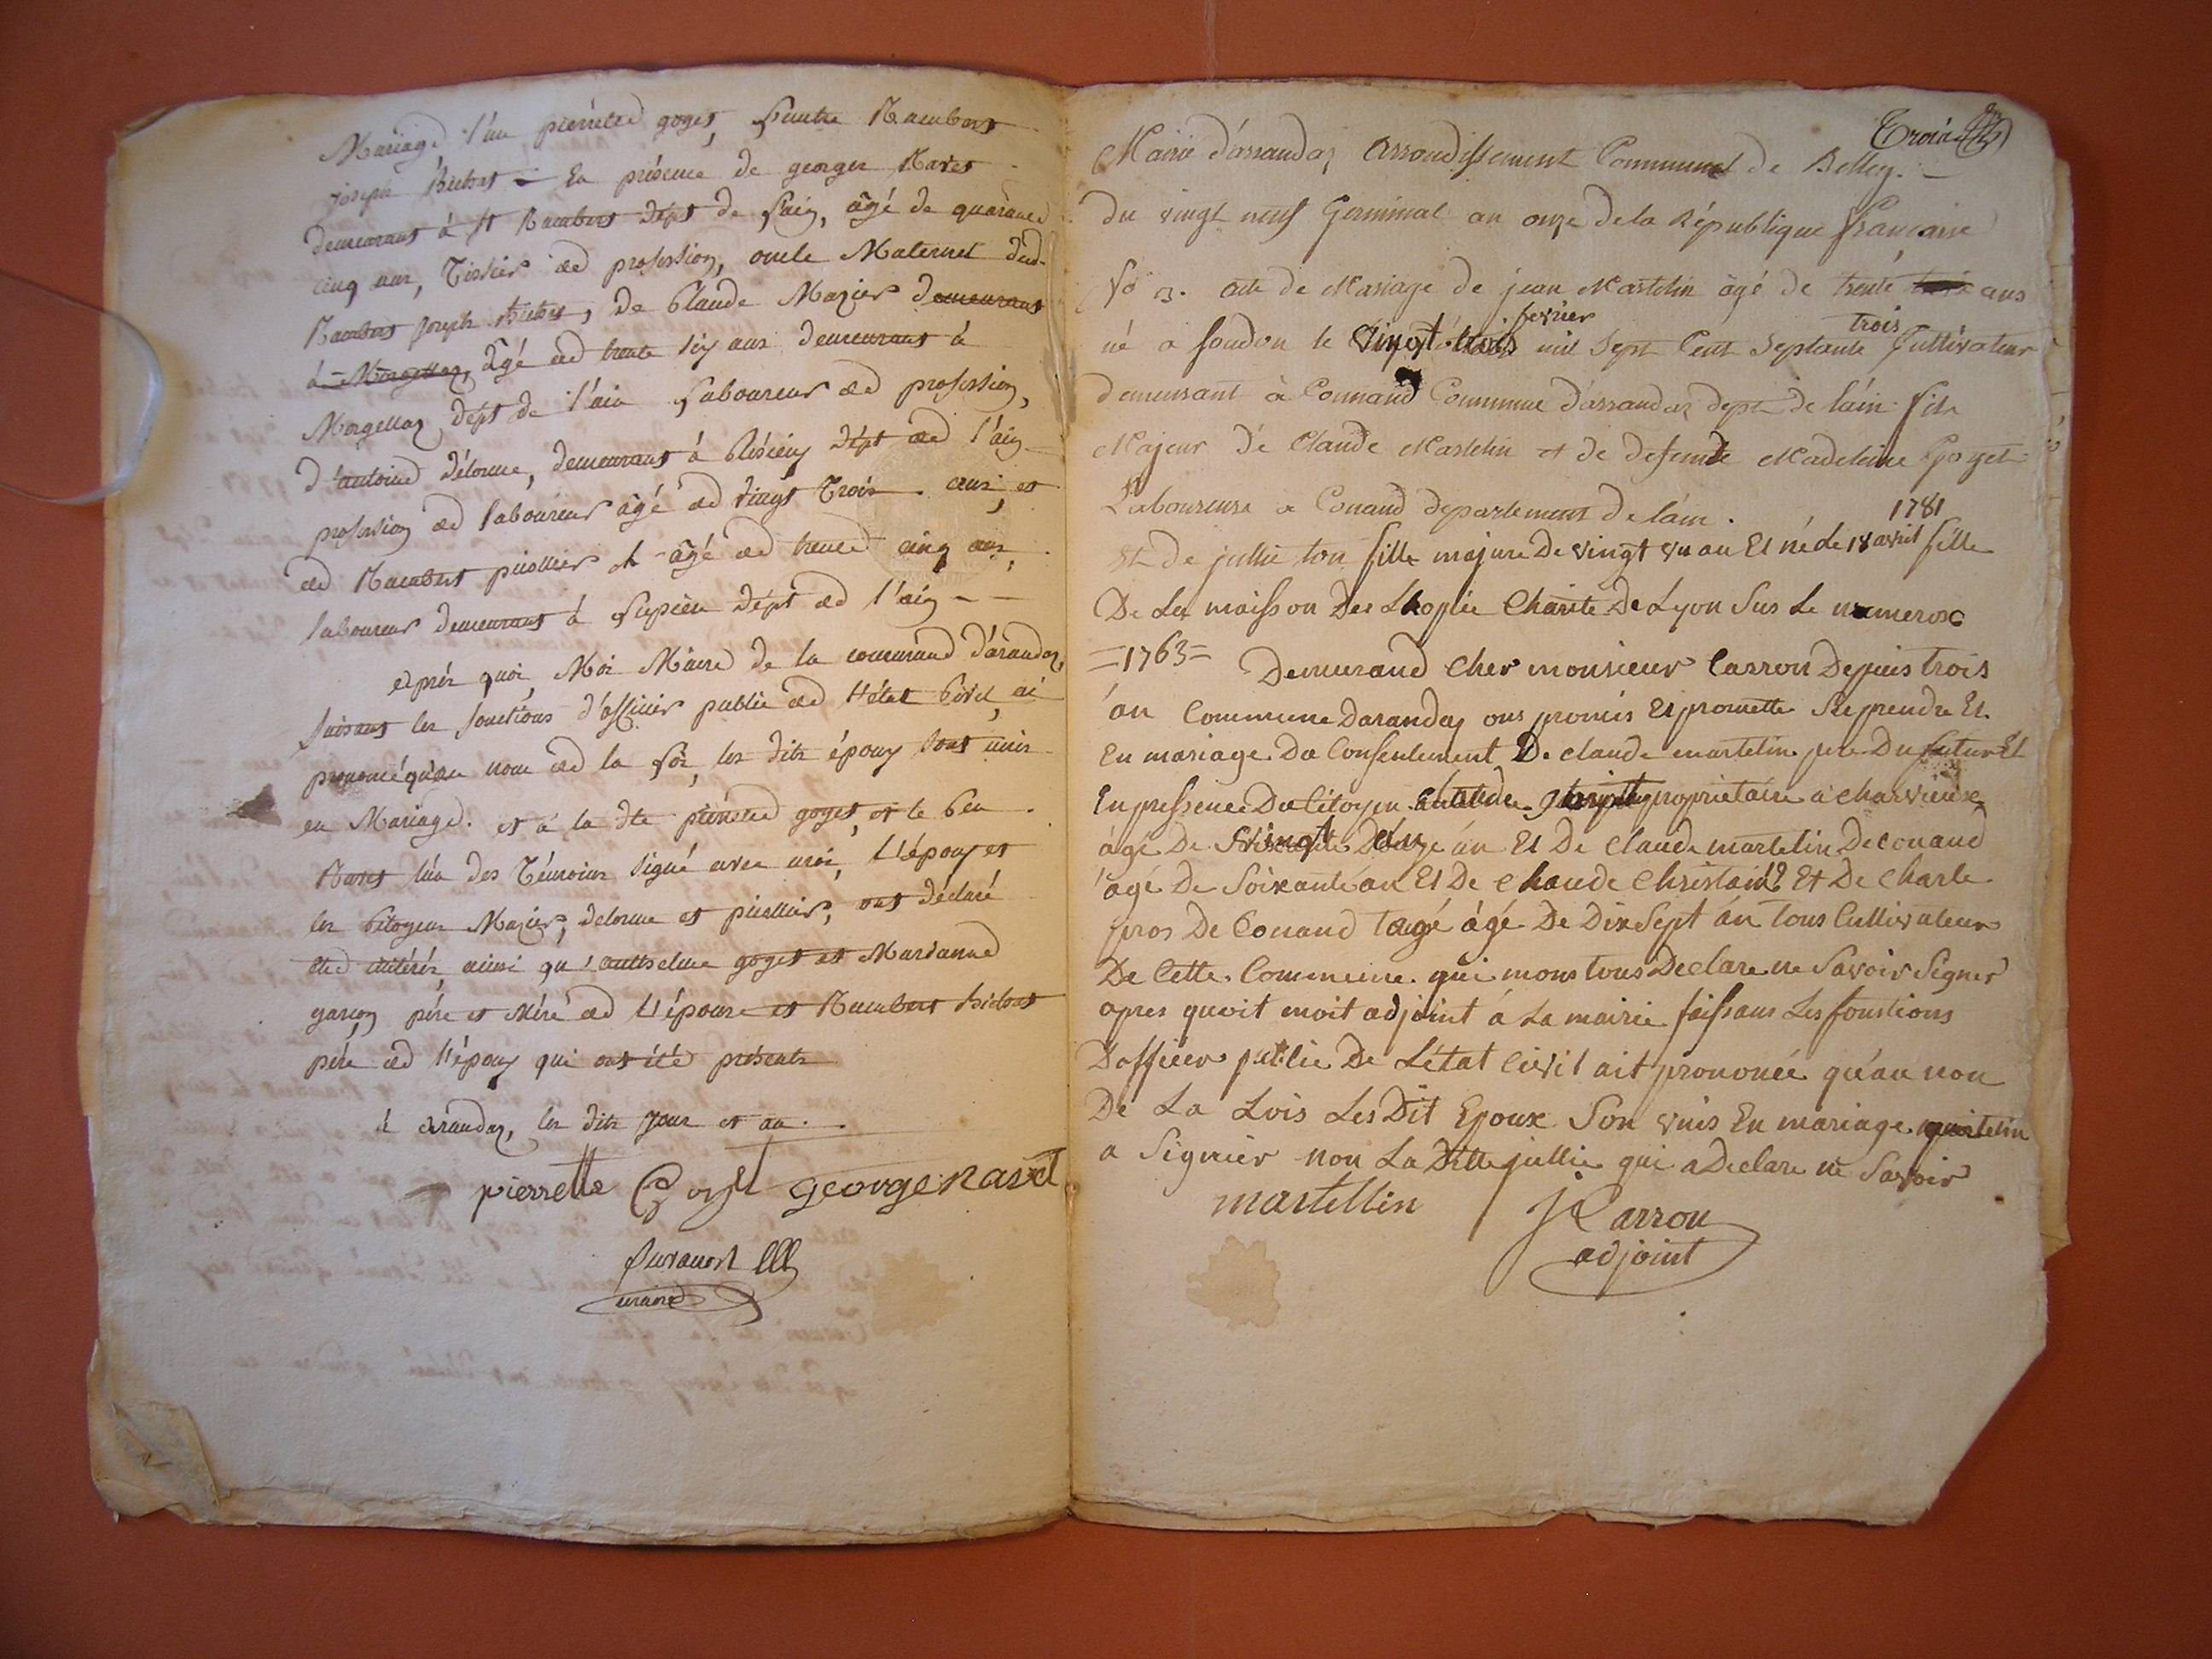 Mariage l'une pierrette goget, l'autre Rambert
joseph En présence de george Ravet
demeurant à St Rambert dépt de l'ain, âgé de quarante
cinq ans, Tissier de profession, oncle Maternel dud.
Rambert joseph de Claude Mazier demeurant
à Morgellaz, âgé de trente six ans demeurant à
Morgellaz dépt de l'ain laboureur de profession,
d'antoine délorme, demeurant à dépt de l'ain
profession de laboureur âgé de vingt trois ans, et
de Rambert âgé de trente cinq ans,
laboureur demeurant à dépt de l'ain
après quoi, Moi Maire de la commune d'arandaz,
faisant les fonctions d'officier public de l'état Civil, ai
prononcé qu'au nom de la loi, les dits époux sont unis
en Mariage. et à la dte pierrette goget, et le Cen
Ravet l'un des Témoins signé avec moi, l'époux et
les Citoyens Mazier, delorme et ont déclaré
ainsi qu'anthelme goget et Marianne
garçon père et Mère de l'épouse et Rambert
père de l'époux qui ont été présents
à arandaz, les dits jour et an.
pierrette Goget george Ravet
maire
Trois
Mairie d'arrandaz arrondissement Communal de Belley.
du vingt neuf Germinal an onze de la République française
No 3. acte de Mariage de jean Martelin âgé de trente ans
fevrier trois
né a soudon le vingt trois mil sept Cent septante Cultivateur
demeurant à Connand Commune d'arrandaz dept de l'ain fils
Majeur dé Claude Martelin et de defunte Madeleine Goyet
Laboureure a Conand departement de l'ain.
1781
et de jullie ton fille majure De vingt un an Et né le 18 avril fille
De La maisson Des Lhopie Charite De Lyon Sus Le numeros
=1763= Demurand Cher monsieur Carron Depuis trois
an Commune Darandaz ons promis Et promette Se prendre Et
En mariage Du Consentement De claude martelin pere Du futur Et
En pressence Du Citoyen propriétaire a charvieux
âgé De vingt an Et De Claude martelin De conand
agé De Soixante an Et De Claude Et De Charle
pros De Conand âgé De Dix Sept an Tous Cultivateur
De Cette Commune qui mons tous Declare ne Savoir Signer
apres quoit moit adjoint á La mairie faissans Les fonstions
D'officier public De L'état Civil ait prononcé qu'au non
De La Lois Les Dit Epoux Son unis En mariage martelin
a Signier non La Ditte jullie qui a Declare ne Savoir
martellin
J Carron
adjoint